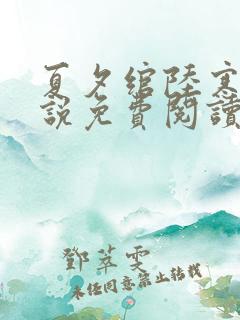 夏夕綰陸寒
說免費閱讀
鄧萃雯
未經同意禁止轉載